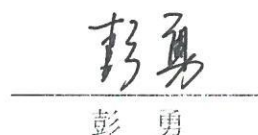 彭勇
彭 勇